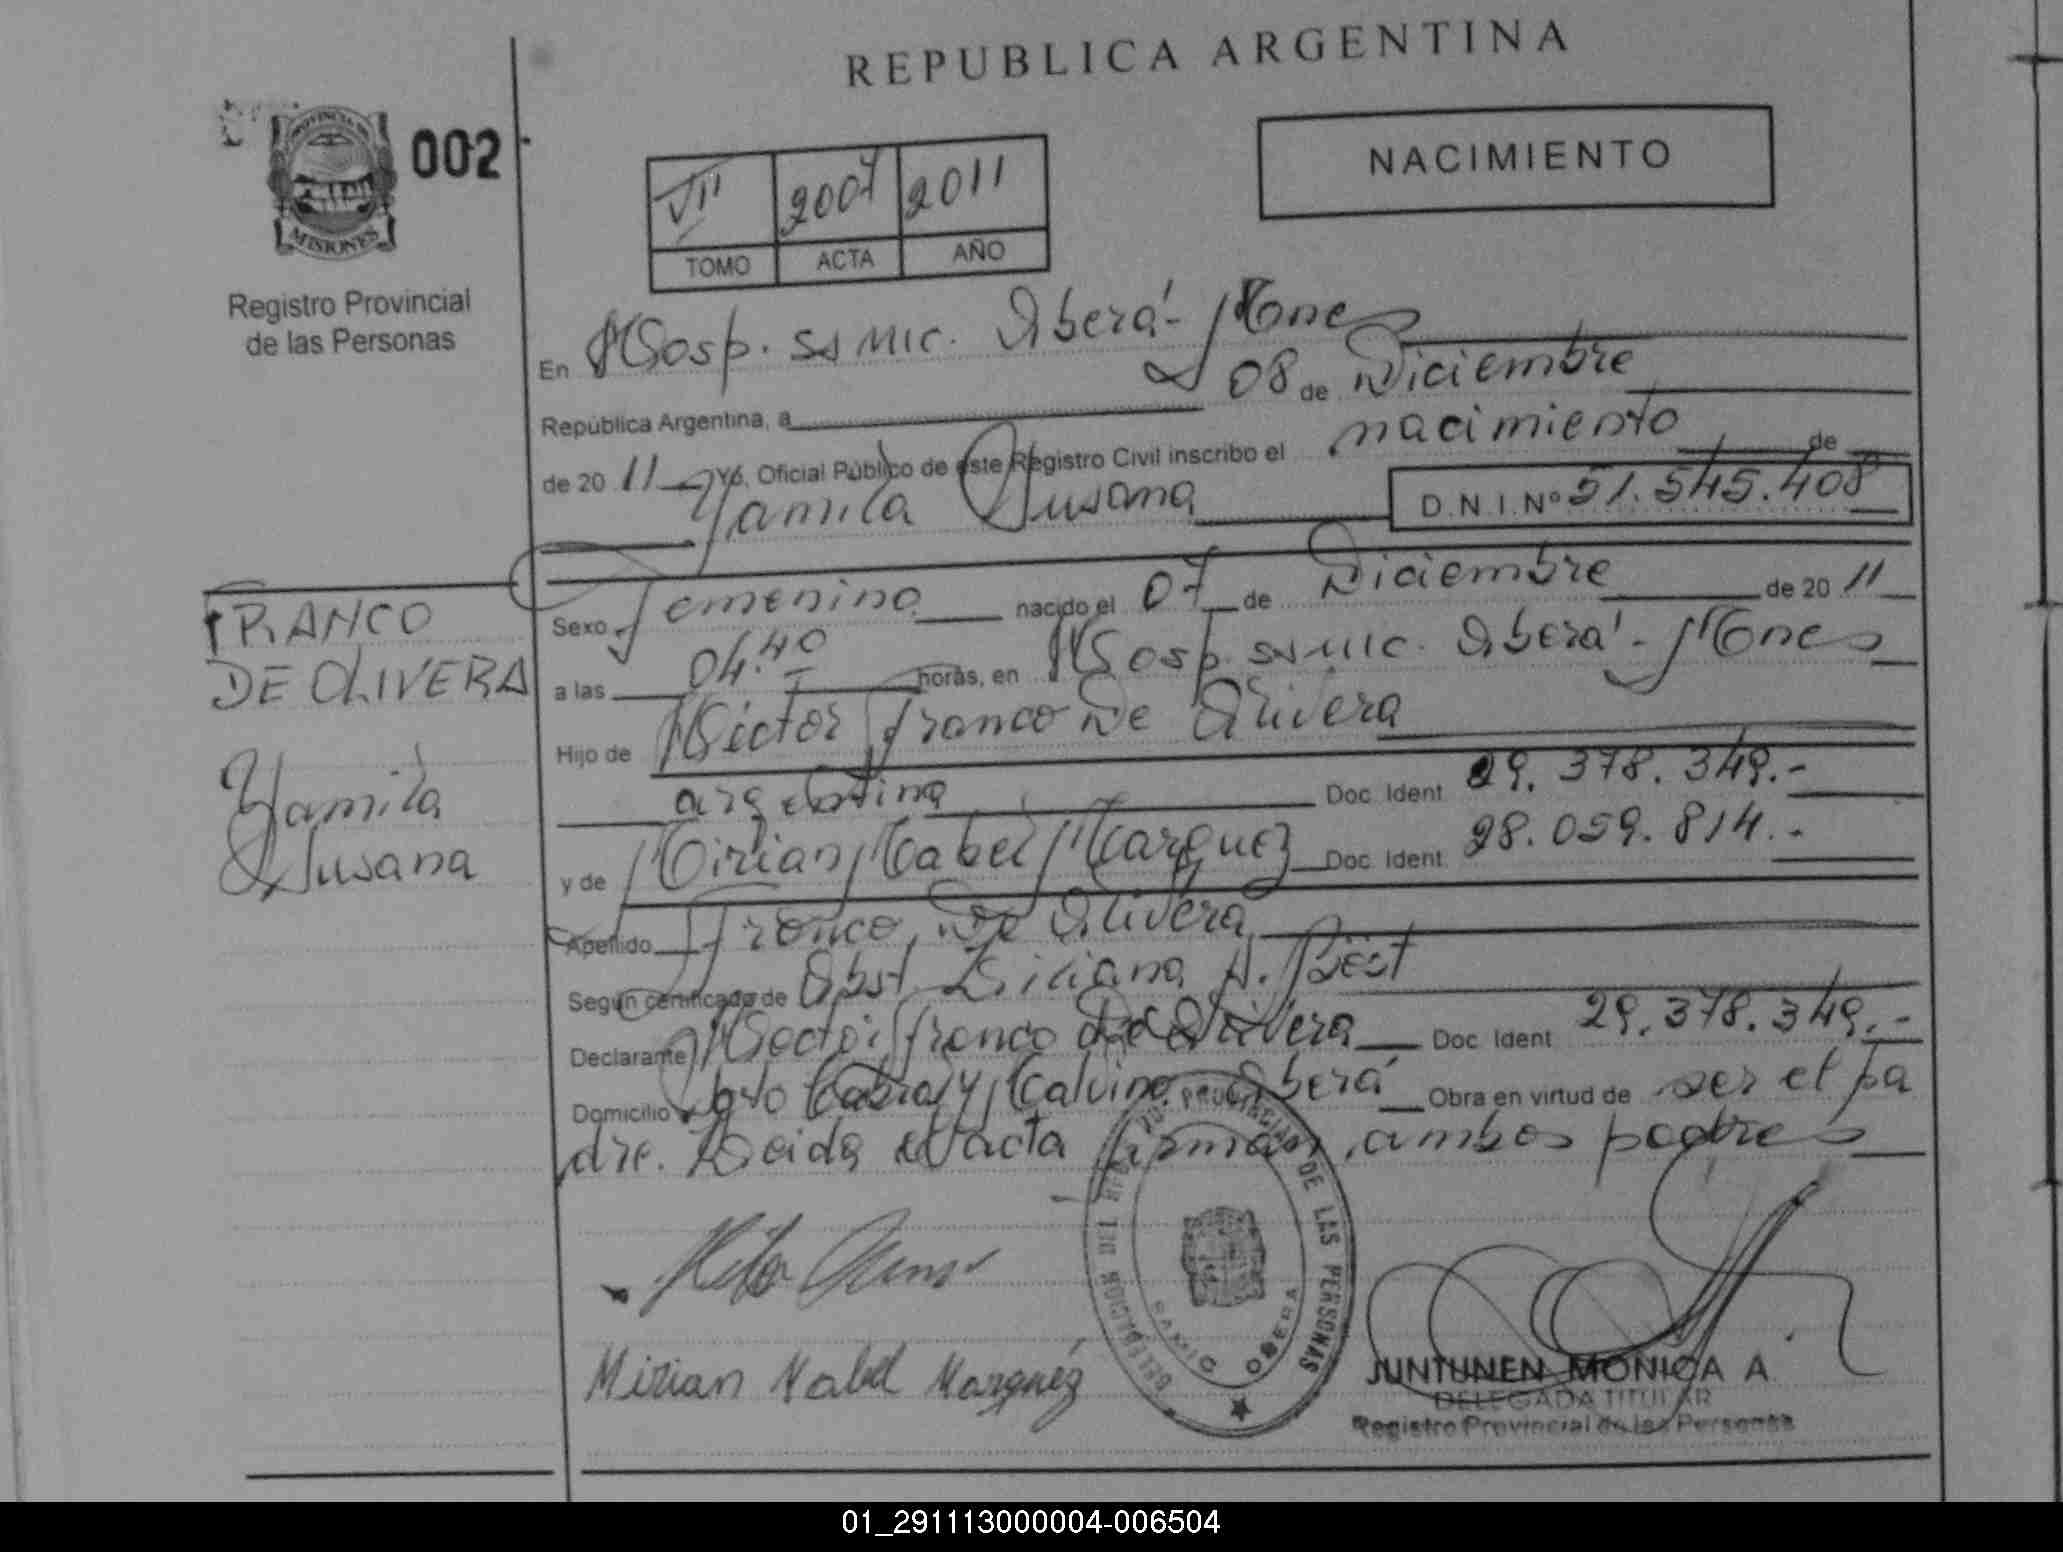 REPUBLICA ARGENTINA
PROVINCIA DE
MISIONES
002
Registro Provincial
de las Personas
VII 2007 2011
TOMO ACTA AÑO
NACIMIENTO
En Hosp. SAMIC. Oberá - Mones
República Argentina, a 08 de Diciembre
de 20 11 Yo, Oficial Público de este Registro Civil inscribo el nacimiento de
Yamila Susana D.N.I. Nº 51.545.408
FRANCO
DE OLIVERA
Yamila
Susana
Sexo femenino nacido el 07 de Diciembre de 20 11
a las 04:40 horas, en Hosp. SAMIC. Oberá - Mones
Hijo de Héctor Franco De Olivera
argentina Doc. Ident. 29.378.349.-
y de Mirian Mabel Marquez Doc. Ident. 28.059.814.-
Apellido Franco De Olivera
Según certificado de Obst. Liliana A. Best
Declarante Hector Franco De Olivera Doc. Ident. 29.378.349.-
Domicilio Cabral y Oberá Obra en virtud de ser el pa
dre. Leida el acta firman ambos padres
Mirian Mabel Marquéz
DELEGACION DEL REGISTRO PROVINCIAL DE LAS PERSONAS
OBERA
JUNTUNEN MONICA A.
DELEGADA TITULAR
Registro Provincial de las Personas
01_291113000004-006504